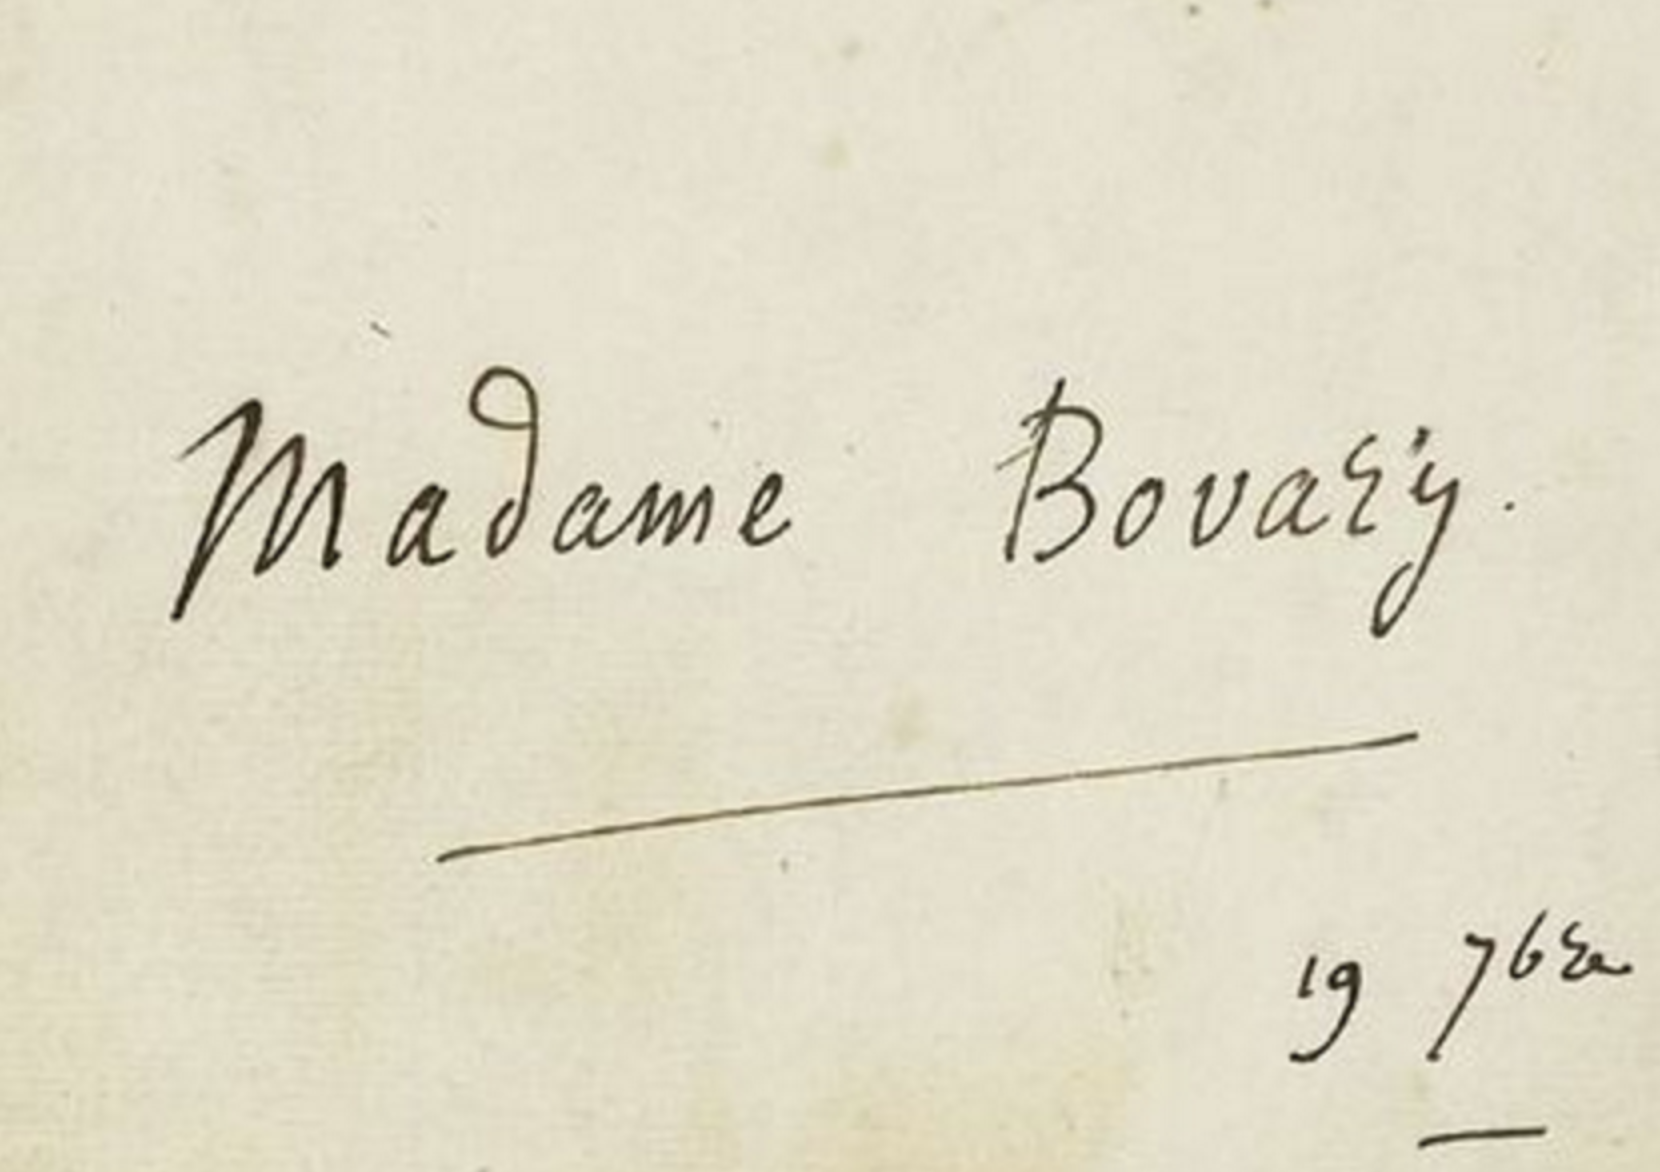 Madame Bovary.
19 7bre